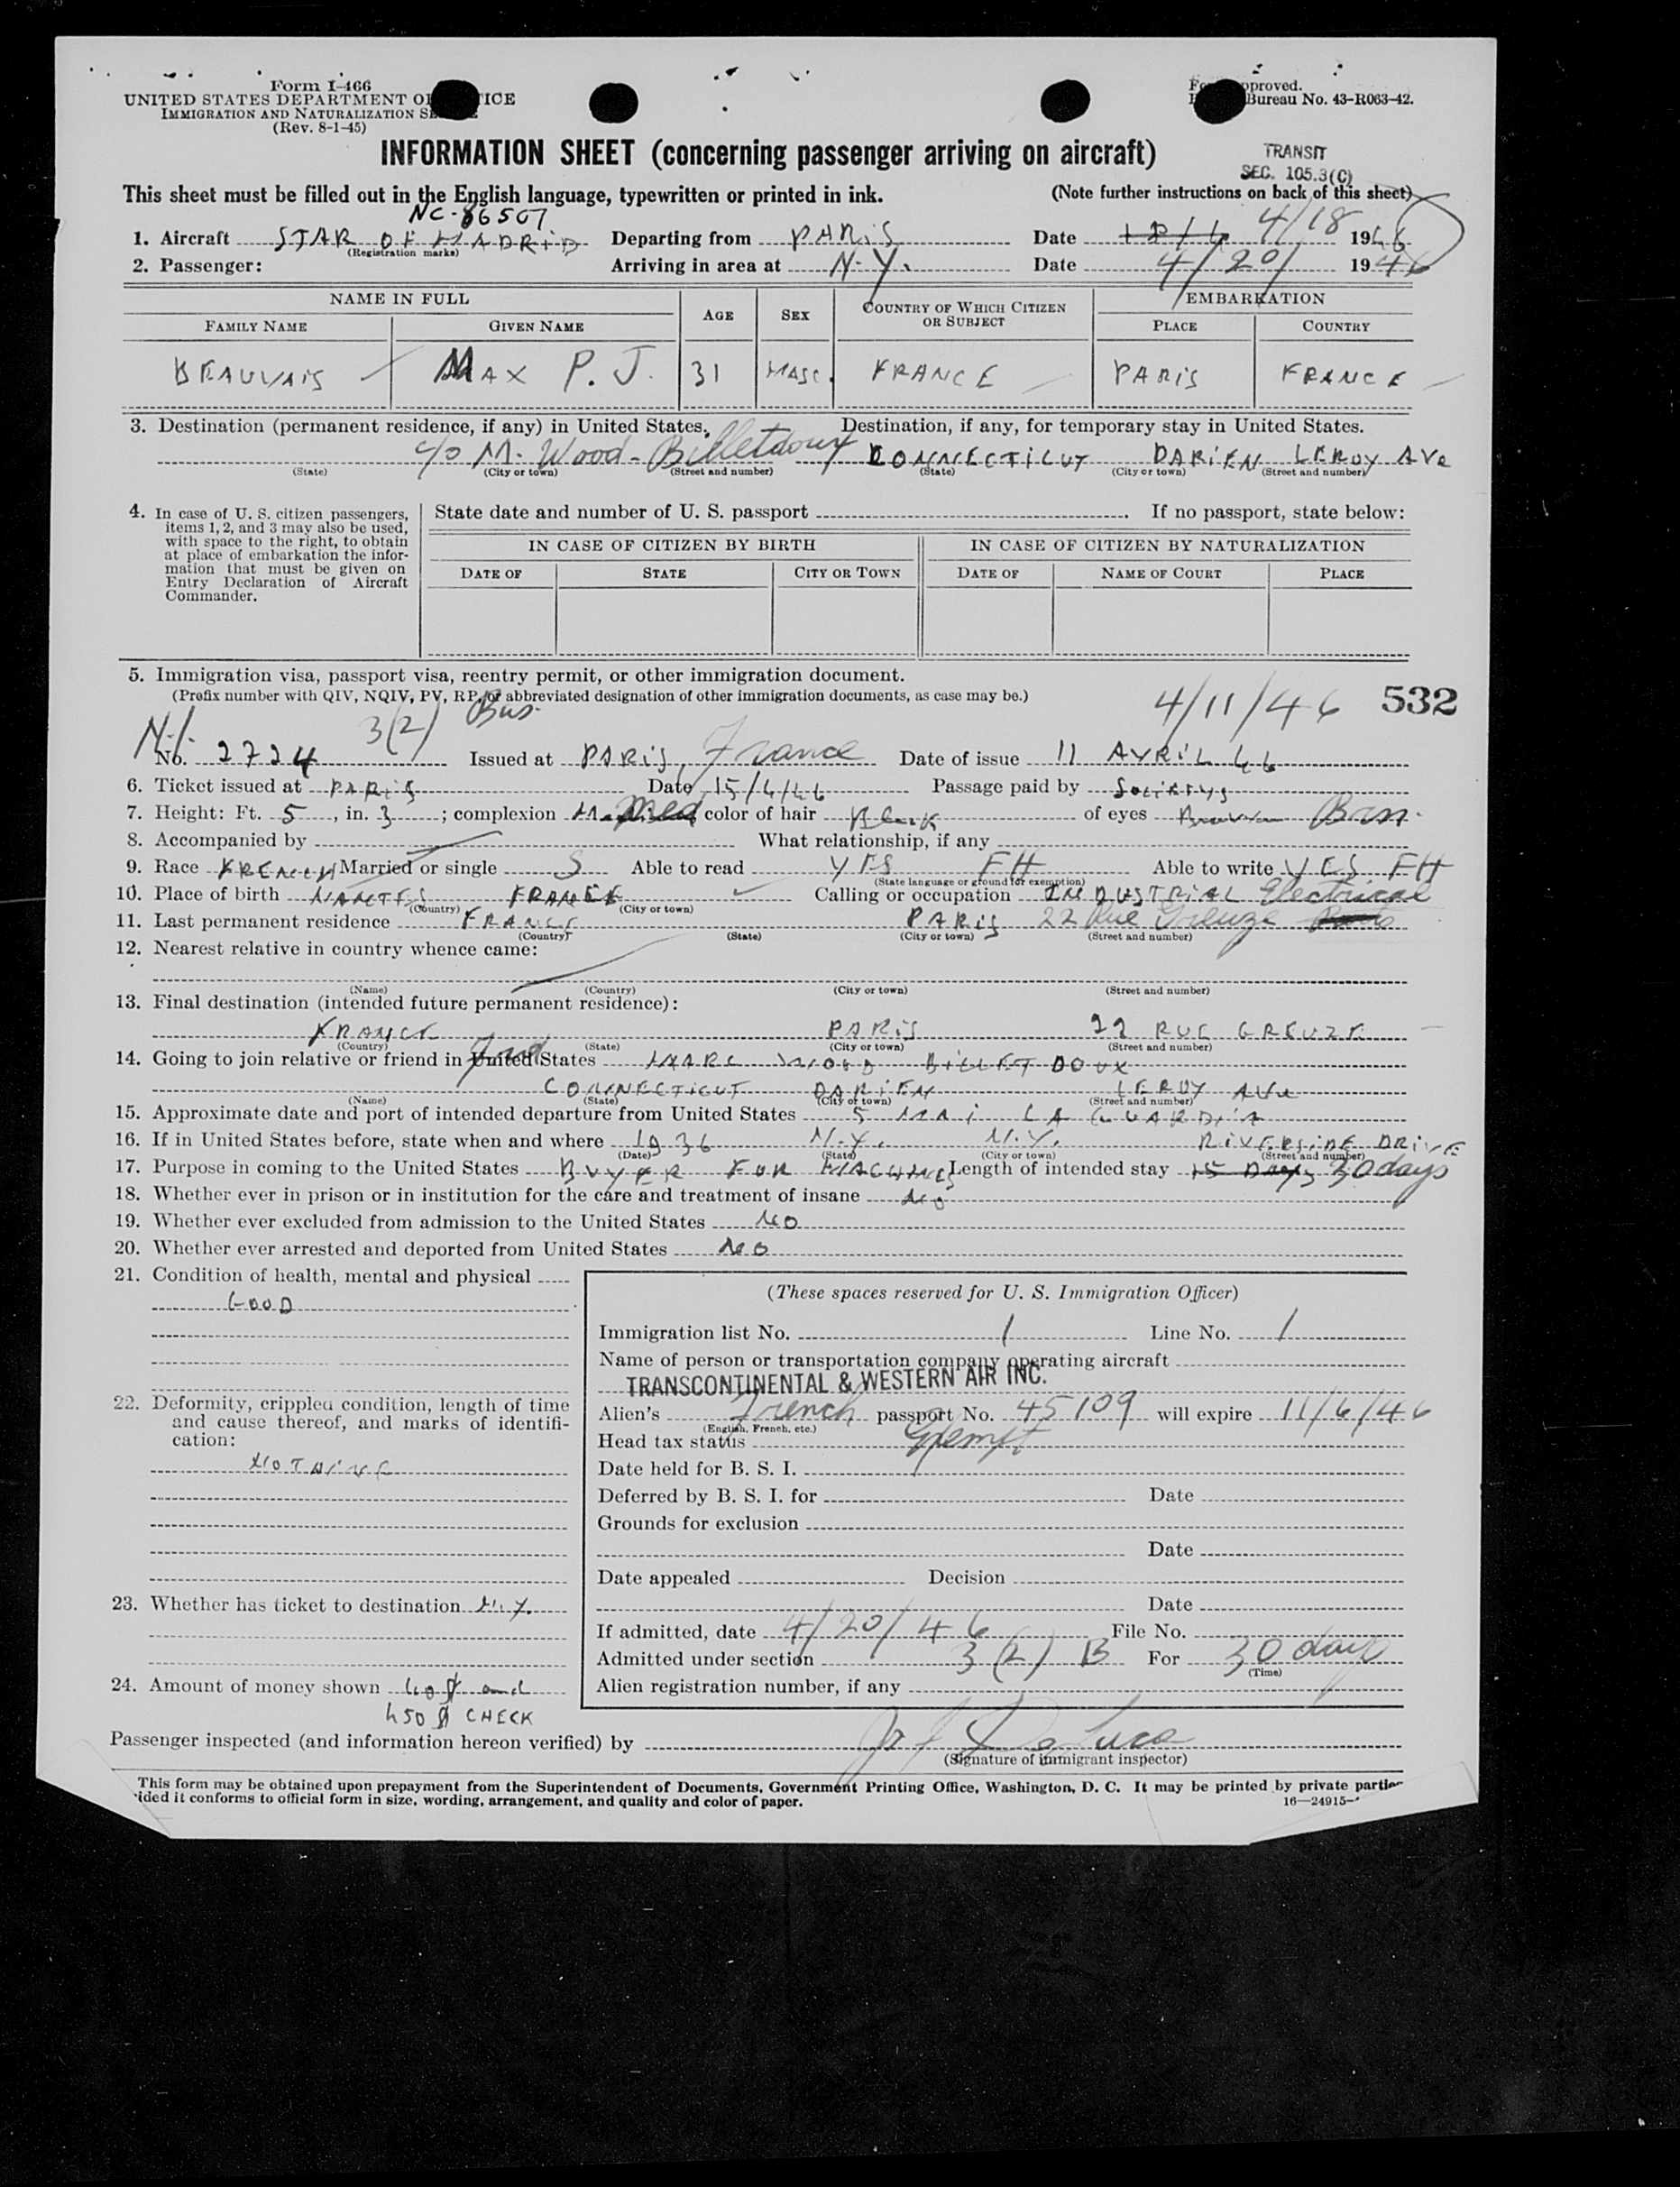 Form I-466
UNITED STATES DEPARTMENT OF JUSTICE
IMMIGRATION AND NATURALIZATION SERVICE
(Rev. 8-1-45)
Form approved.
Bureau No. 43-R063-42.
INFORMATION SHEET (concerning passenger arriving on aircraft)
TRANSIT
SEC. 105.3(C)
This sheet must be filled out in the English language, typewritten or printed in ink.
(Note further instructions on back of this sheet)
NC-86507
1. Aircraft STAR OF MADRID Departing from PARIS Date 4/18 1946
(Registration marks)
2. Passenger: Arriving in area at N.Y. Date 4/20/ 1946
NAME IN FULL AGE SEX COUNTRY OF WHICH CITIZEN OR SUBJECT EMBARKATION
FAMILY NAME GIVEN NAME PLACE COUNTRY
BEAUVAIS MAX P. J. 31 MASC. FRANCE PARIS FRANCE
3. Destination (permanent residence, if any) in United States. Destination, if any, for temporary stay in United States.
c/o M. Wood-Billetdoux CONNECTICUT DARIEN LEROY AVe
(State) (City or town) (Street and number) (State) (City or town) (Street and number)
4. In case of U. S. citizen passengers, items 1, 2, and 3 may also be used, with space to the right, to obtain at place of embarkation the information that must be given on Entry Declaration of Aircraft Commander.
State date and number of U. S. passport . If no passport, state below:
IN CASE OF CITIZEN BY BIRTH IN CASE OF CITIZEN BY NATURALIZATION
DATE OF STATE CITY OR TOWN DATE OF NAME OF COURT PLACE
5. Immigration visa, passport visa, reentry permit, or other immigration document.
(Prefix number with QIV, NQIV, PV, RP, or abbreviated designation of other immigration documents, as case may be.)
4/11/46 532
N.I. 3(2) Bus.
No. 2724 Issued at PARIS, France Date of issue 11 AVRIL 46
6. Ticket issued at PARIS Date 15/4/46 Passage paid by SOCIETYS
7. Height: Ft. 5, in. 3; complexion Med color of hair Black of eyes Brown Brn.
8. Accompanied by What relationship, if any
9. Race FRENCH Married or single S Able to read YES FH Able to write YES FH
(State language or ground for exemption)
10. Place of birth NANTES FRANCE Calling or occupation INDUSTRIAL Electrical
(Country) (City or town)
11. Last permanent residence FRANCE PARIS 22 Rue Greuze
(Country) (State) (City or town) (Street and number)
12. Nearest relative in country whence came:
(Name) (Country) (City or town) (Street and number)
13. Final destination (intended future permanent residence):
FRANCE PARIS 22 RUE GREUZE
(Country) (State) (City or town) (Street and number)
14. Going to join relative or friend in United States MARC WOOD BILLETDOUX
CONNECTICUT DARIEN LEROY AVe
(Name) (State) (City or town) (Street and number)
15. Approximate date and port of intended departure from United States 5 MAI LA GUARDIA
16. If in United States before, state when and where 1936 N.Y. N.Y. RIVERSIDE DRIVE
(Date) (State) (City or town) (Street and number)
17. Purpose in coming to the United States BUYER FOR MACHINES Length of intended stay 15 DAYS 30 days
18. Whether ever in prison or in institution for the care and treatment of insane NO
19. Whether ever excluded from admission to the United States NO
20. Whether ever arrested and deported from United States NO
21. Condition of health, mental and physical
GOOD
22. Deformity, crippled condition, length of time and cause thereof, and marks of identification:
NOTHING
23. Whether has ticket to destination N.Y.
24. Amount of money shown 40$ and
450 $ CHECK
(These spaces reserved for U. S. Immigration Officer)
Immigration list No. 1 Line No. 1
Name of person or transportation company operating aircraft
TRANSCONTINENTAL & WESTERN AIR INC.
Alien's French passport No. 45109 will expire 11/6/46
(English, French, etc.)
Head tax status Exempt
Date held for B. S. I.
Deferred by B. S. I. for Date
Grounds for exclusion
Date
Date appealed Decision
Date
If admitted, date 4/20/46 File No.
Admitted under section 3(2) B For 30 days
(Time)
Alien registration number, if any
Passenger inspected (and information hereon verified) by
(Signature of immigrant inspector)
This form may be obtained upon prepayment from the Superintendent of Documents, Government Printing Office, Washington, D. C. It may be printed by private parties
ided it conforms to official form in size, wording, arrangement, and quality and color of paper.
16—24915-